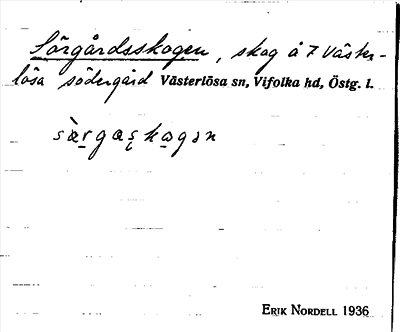 Sörgårdsskogen, skog å 7 Väster-
lösa södergård Västerlösa sn, Vifolka hd, Östg. l.
sàrgaskogən
ERIK NORDELL 1936